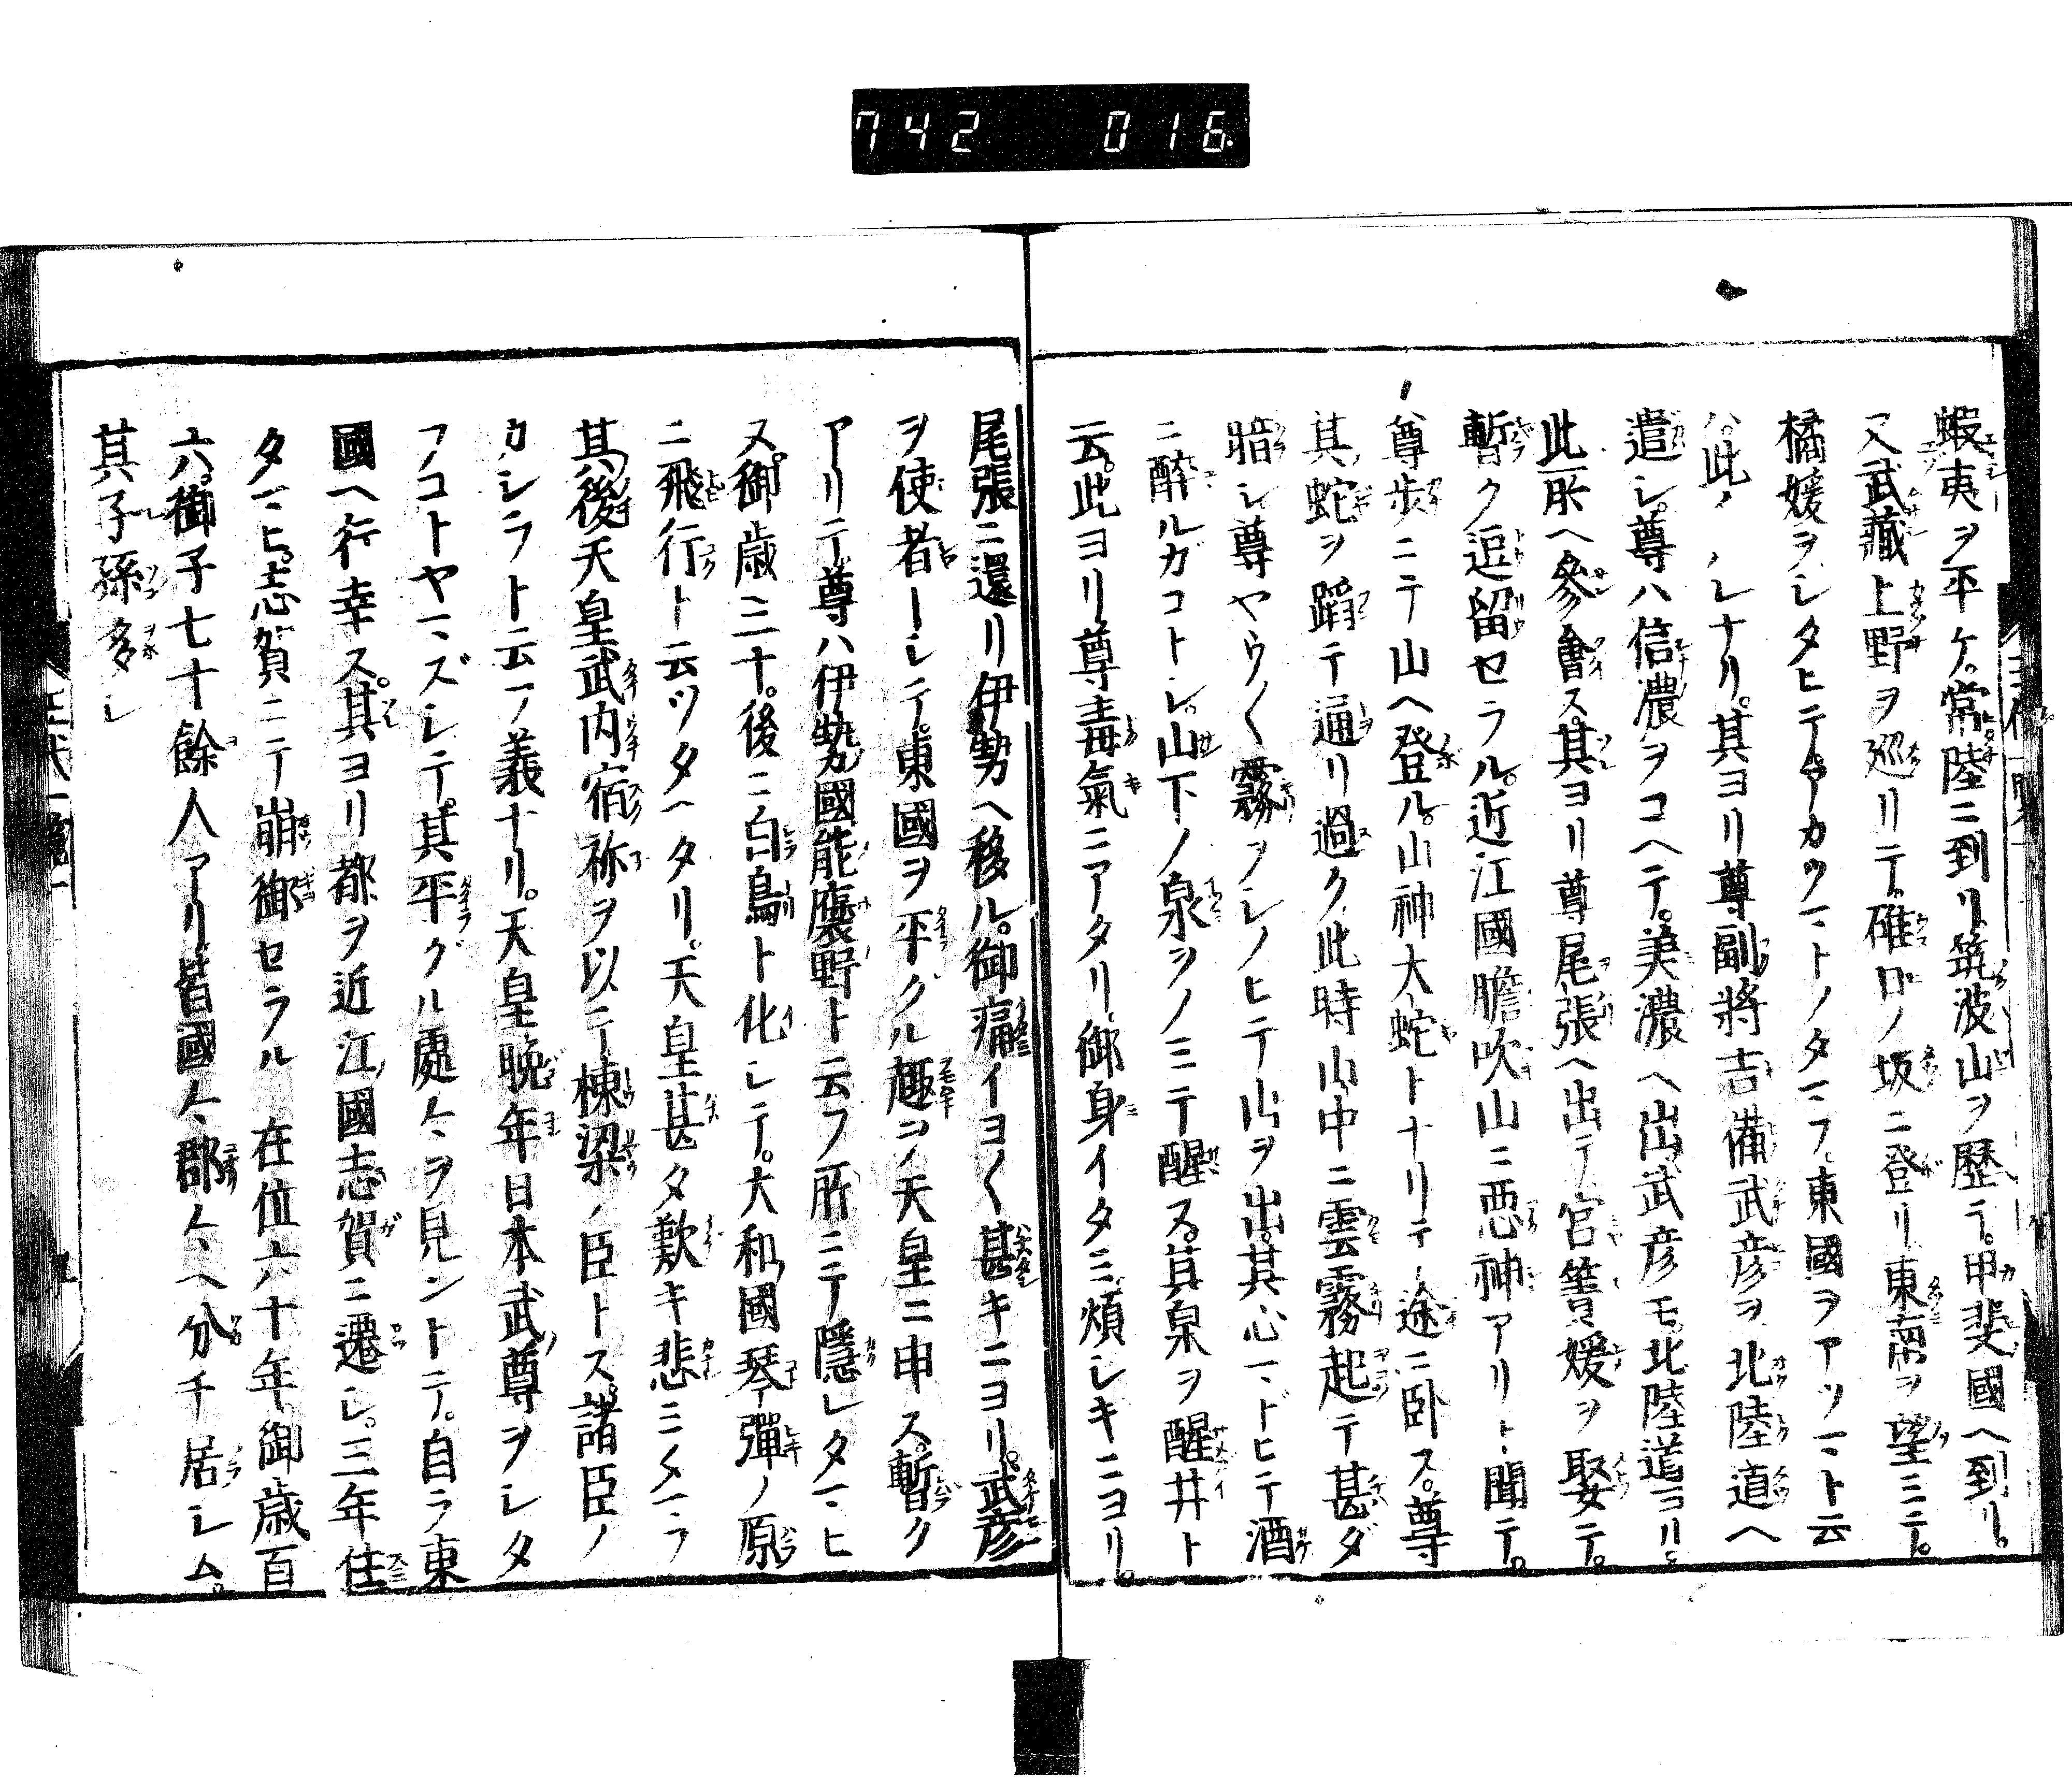 742 016
蝦夷ヲ平ケ。常陸ニ到リ筑波山ヲ歴テ。甲斐國ヘ到リ。
又武藏上野ヲ巡リテ。碓日ノ坂ニ登リ東南ヲ望ミテ。
橘媛ヲシタヒテ。アカツマトノタマフ。東國ヲアツマト云
ハ此 レナリ。其ヨリ尊副將吉備武彦ヲ北陸道ヘ
遣シ。尊ハ信濃ヲコヘテ。美濃ヘ出。武彦モ。北陸道ヨリ
此所ヘ參會ス。其ヨリ尊尾張ヘ出テ宮簀媛ヲ娶テ。
暫ク逗留セラル。近江國膽吹山ニ惡神アリト聞テ。
尊歩ニテ山ヘ登ル。山神大蛇トナリテ途ニ卧ス。尊
其蛇ヲ蹈テ通リ過ク此時山中ニ雲霧起テ甚ダ
暗シ尊ヤウ〱霧ヲシノヒテ山ヲ出。其心マドヒテ酒
ニ醉ルガコトシ。山下ノ泉ヲノミテ醒ス。其泉ヲ醒井ト
云。此ヨリ尊毒氣ニアタリ。御身イタミ。煩シキニヨリ。
尾張ニ還リ伊勢ヘ移ル。御痛イヨ〱甚キニヨリ。武彦
ヲ使者トシテ。東國ヲ平クル趣ヲ天皇ニ申ス。暫ク
アリテ尊ハ伊勢國能褒野ト云フ所ニテ隱レタマヒ
ヌ。御歳三十。後ニ白鳥ト化シテ。大和國琴彈ノ原
ニ飛行ト云ツタヘタリ。天皇甚タ歎キ悲ミタマフ
其後天皇武内宿祢ヲ以テ棟梁ノ臣トス。諸臣ノ
カシラト云フ義ナリ。天皇晩年日本武尊ヲシタ
フコトヤマズシテ。其平グル處々ヲ見ントテ。自ラ東
國ヘ行幸ス。其ヨリ都ヲ近江國志賀ニ遷シ。三年住
タマヒ。志賀ニテ崩御セラル 在位六十年。御歳百
六。御子七十餘人アリ皆國々郡々ヘ分チ居シム。
其子孫多シ